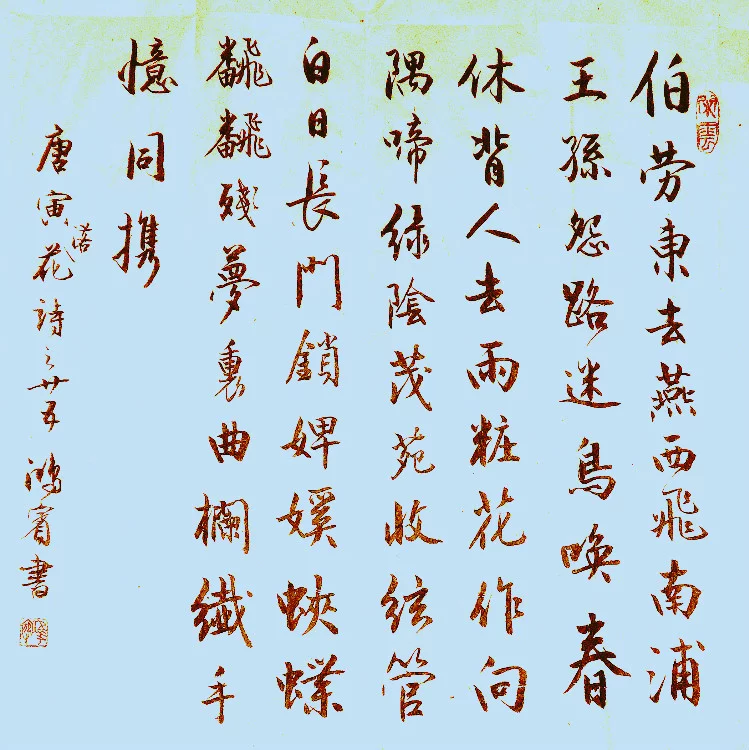 伯劳東去燕西飛南浦
王孫怨路迷鳥喚春
休背人去雨粧花作向
隅啼緑陰茂苑收絃管
白日長門鎖婢㜎蛺蝶
飜飜殘夢裏曲欄纖手
憶同携
唐寅落花詩之廿五 鴻賓書